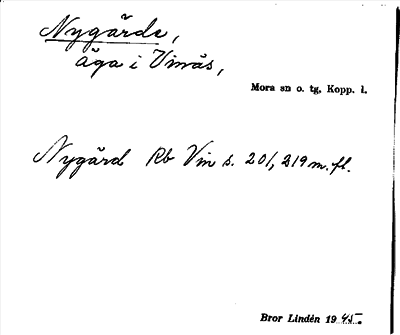 Nygårde,
äga i Vinäs,
Mora sn o. tg, Kopp. l.
Nygård Rb Vin s. 201, 219 m. fl.
Bror Lindén 1945.